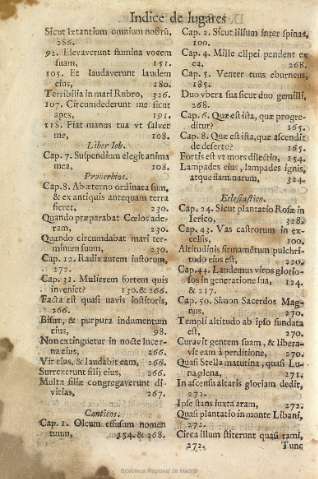 Indice de lugares
Sicut lætantium omnium nostrū,
266.
92. Elevaverunt flumina vocem
suam, 151.
105. Et laudaverunt laudem
eius, 180.
Terribilia in mari Rubro, 326.
107. Circumdederunt me sicut
apes, 191.
118. Fiat manus tua vt salvet
me, 108.
Liber Iob.
Cap. 7. Suspendium elegit anima
mea, 108.
Proverbios.
Cap. 8. Ab æterno ordinata sum,
& ex antiquis antequam terra
fieret, 230.
Quando præparabat Cœlos ade-
ram, 230.
Quando circumdabat mari ter-
minum suum, 230.
Cap. 12. Radix autem iustorum,
272.
Cap. 31. Mulierem fortem quis
inveniet? 130. & 266.
Facta est quasi navis institoris,
266.
Bissus, & purpura indumentum
eius, 98.
Non extinguetur in nocte lucer-
na eius, 266.
Vir eius, & laudabit eam, 268.
Surrexerunt filij eius, 266.
Multæ filiæ congregaverunt di-
vitias, 267.
Canticos.
Cap. 1. Oleum effusum nomen
tuum, 254. & 268.
Cap. 2. Sicut lilium inter spinas,
100.
Cap. 4. Mille clipei pendent ex
ea, 268.
Cap. 5. Venter tuus eburneus,
185.
Duo vbera tua sicut duo gemilli,
268.
Cap. 6. Quæ est ista, quæ progre-
ditur? 265.
Cap. 8. Quæ est ista, quæ ascendit
de deserto? 265.
Fortis est vt mors dilectio, 254.
Lampades eius, lampades ignis,
atque flammarum, 324.
Eclesiastico.
Cap. 24. Sicut plantatio Rosæ in
Ierico, 328.
Cap. 43. Vas castrorum in ex-
celsis, 100.
Altitudinis firmamētum pulchri-
tudo eius est, 220.
Cap. 44. Laudemus viros glorio-
sos in generatione sua, 124.
& 217.
Cap. 50. Simon Sacerdos Mag-
nus, 270.
Templi altitudo ab ipso fundata
est, 270.
Curavit gentem suam, & libera-
vit eam à perditione, 270.
Quasi Stella matutina, quasi Lu-
na plena, 271.
In ascensu altaris gloriam dedit,
272.
Ipse stans iuxta aram, 272.
Quasi plantatio in monte Libani,
272.
Circa illum steterunt quasi rami,
272. Tunc
Biblioteca Regional de Madrid